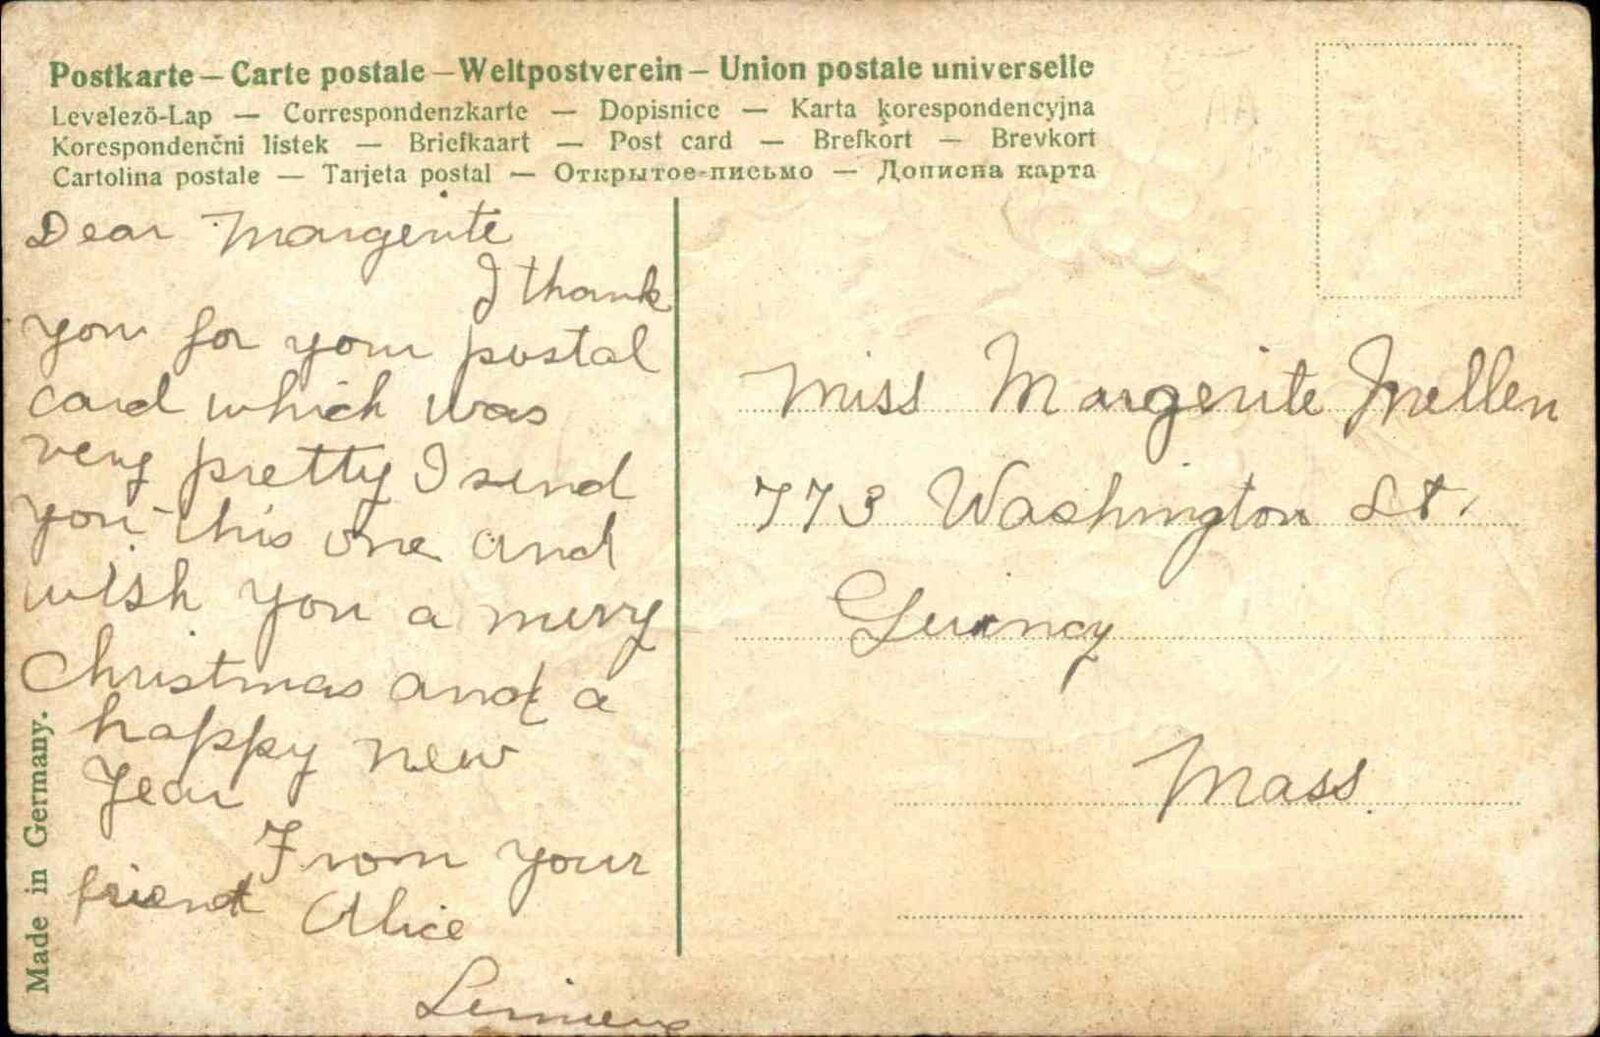 Postkarte – Carte postale – Weltpostverein – Union postale universelle
Levelező-Lap — Correspondenzkarte — Dopisnice — Karta korespondencyjna
Korespondenčni listek — Briefkaart — Post card — Brefkort — Brevkort
Cartolina postale — Tarjeta postal — Открытое-письмо — Дописна карта
Dear Margerite
I thank
you for your postal
card which was
very pretty I send
you this one and
wish you a merry
Christmas and a
happy new
Year
From your
friend Alice
Miss Margerite Mellen
773 Washington St.
Quincy
Mass.
Made in Germany.